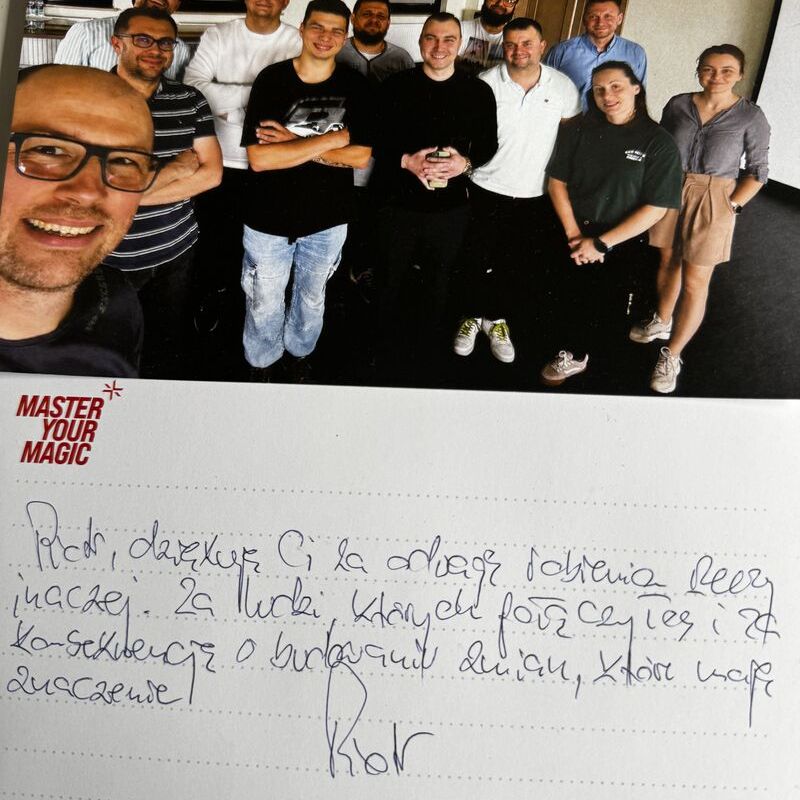 MASTER
YOUR
MAGIC
Piotr, dziękuję Ci za odwagę robienia rzeczy
inaczej. Za ludzi, których połączyłeś i za
konsekwencję o budowaniu zmian, które mają
znaczenie!
Piotr